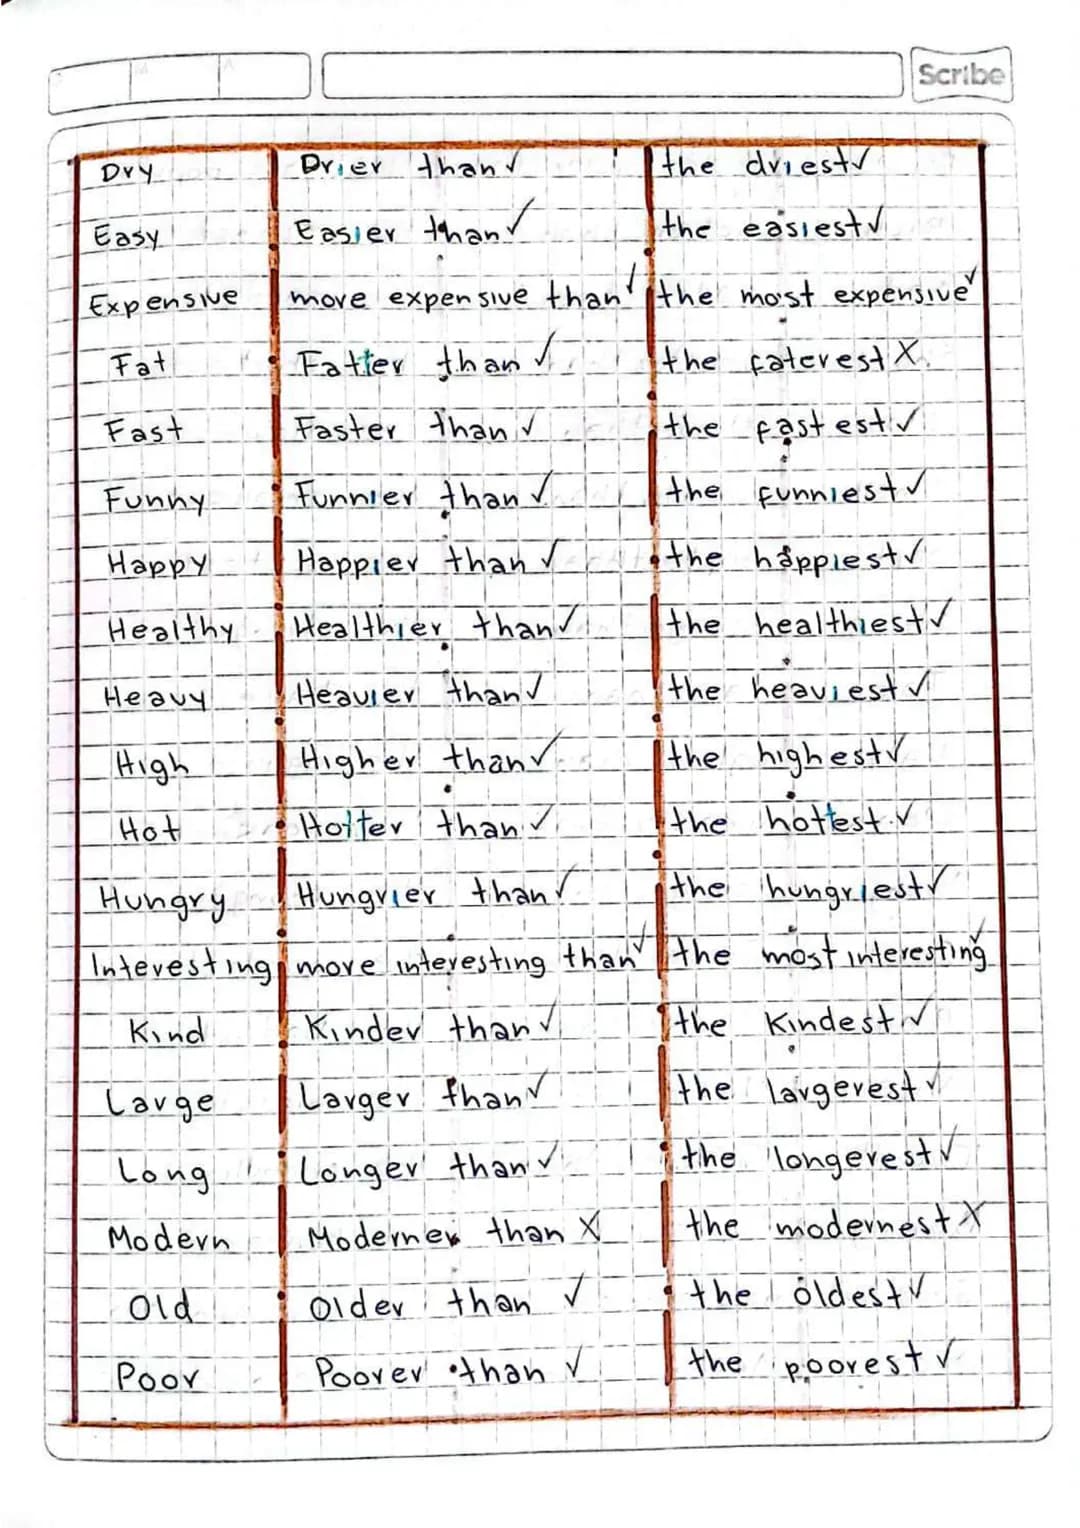 Scribe
Dry Drier than ✓ the driest ✓
Easy Easier than ✓ the easiest ✓
Expensive more expensive than ✓ the most expensive ✓
Fat Fatter than ✓ the faterest X
Fast Faster than ✓ the fastest ✓
Funny Funnier than ✓ the funniest ✓
Happy Happier than ✓ the happiest ✓
Healthy Healthier than ✓ the healthiest ✓
Heavy Heavier than ✓ the heaviest ✓
High Higher than ✓ the highest ✓
Hot Hotter than ✓ the hottest ✓
Hungry Hungrier than ✓ the hungriest ✓
Interesting more interesting than ✓ the most interesting ✓
Kind Kinder than ✓ the Kindest ✓
Large Larger than ✓ the largerest ✓
Long Longer than ✓ the longerest ✓
Modern Moderner than X the modernest X
Old Older than ✓ the oldest ✓
Poor Poorer than ✓ the poorest ✓